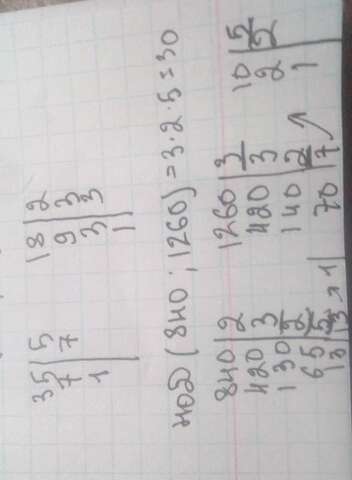 35|5 18|2
7|7 9|3
1 3|3
1
НОД (840 ; 1260) = 3 · 2 · 5 = 30
840|2 1260|3 10|5
420|3 420|3 2|2
130|2 140|2 1
65|5 70|7 ↗
13|13 → 1